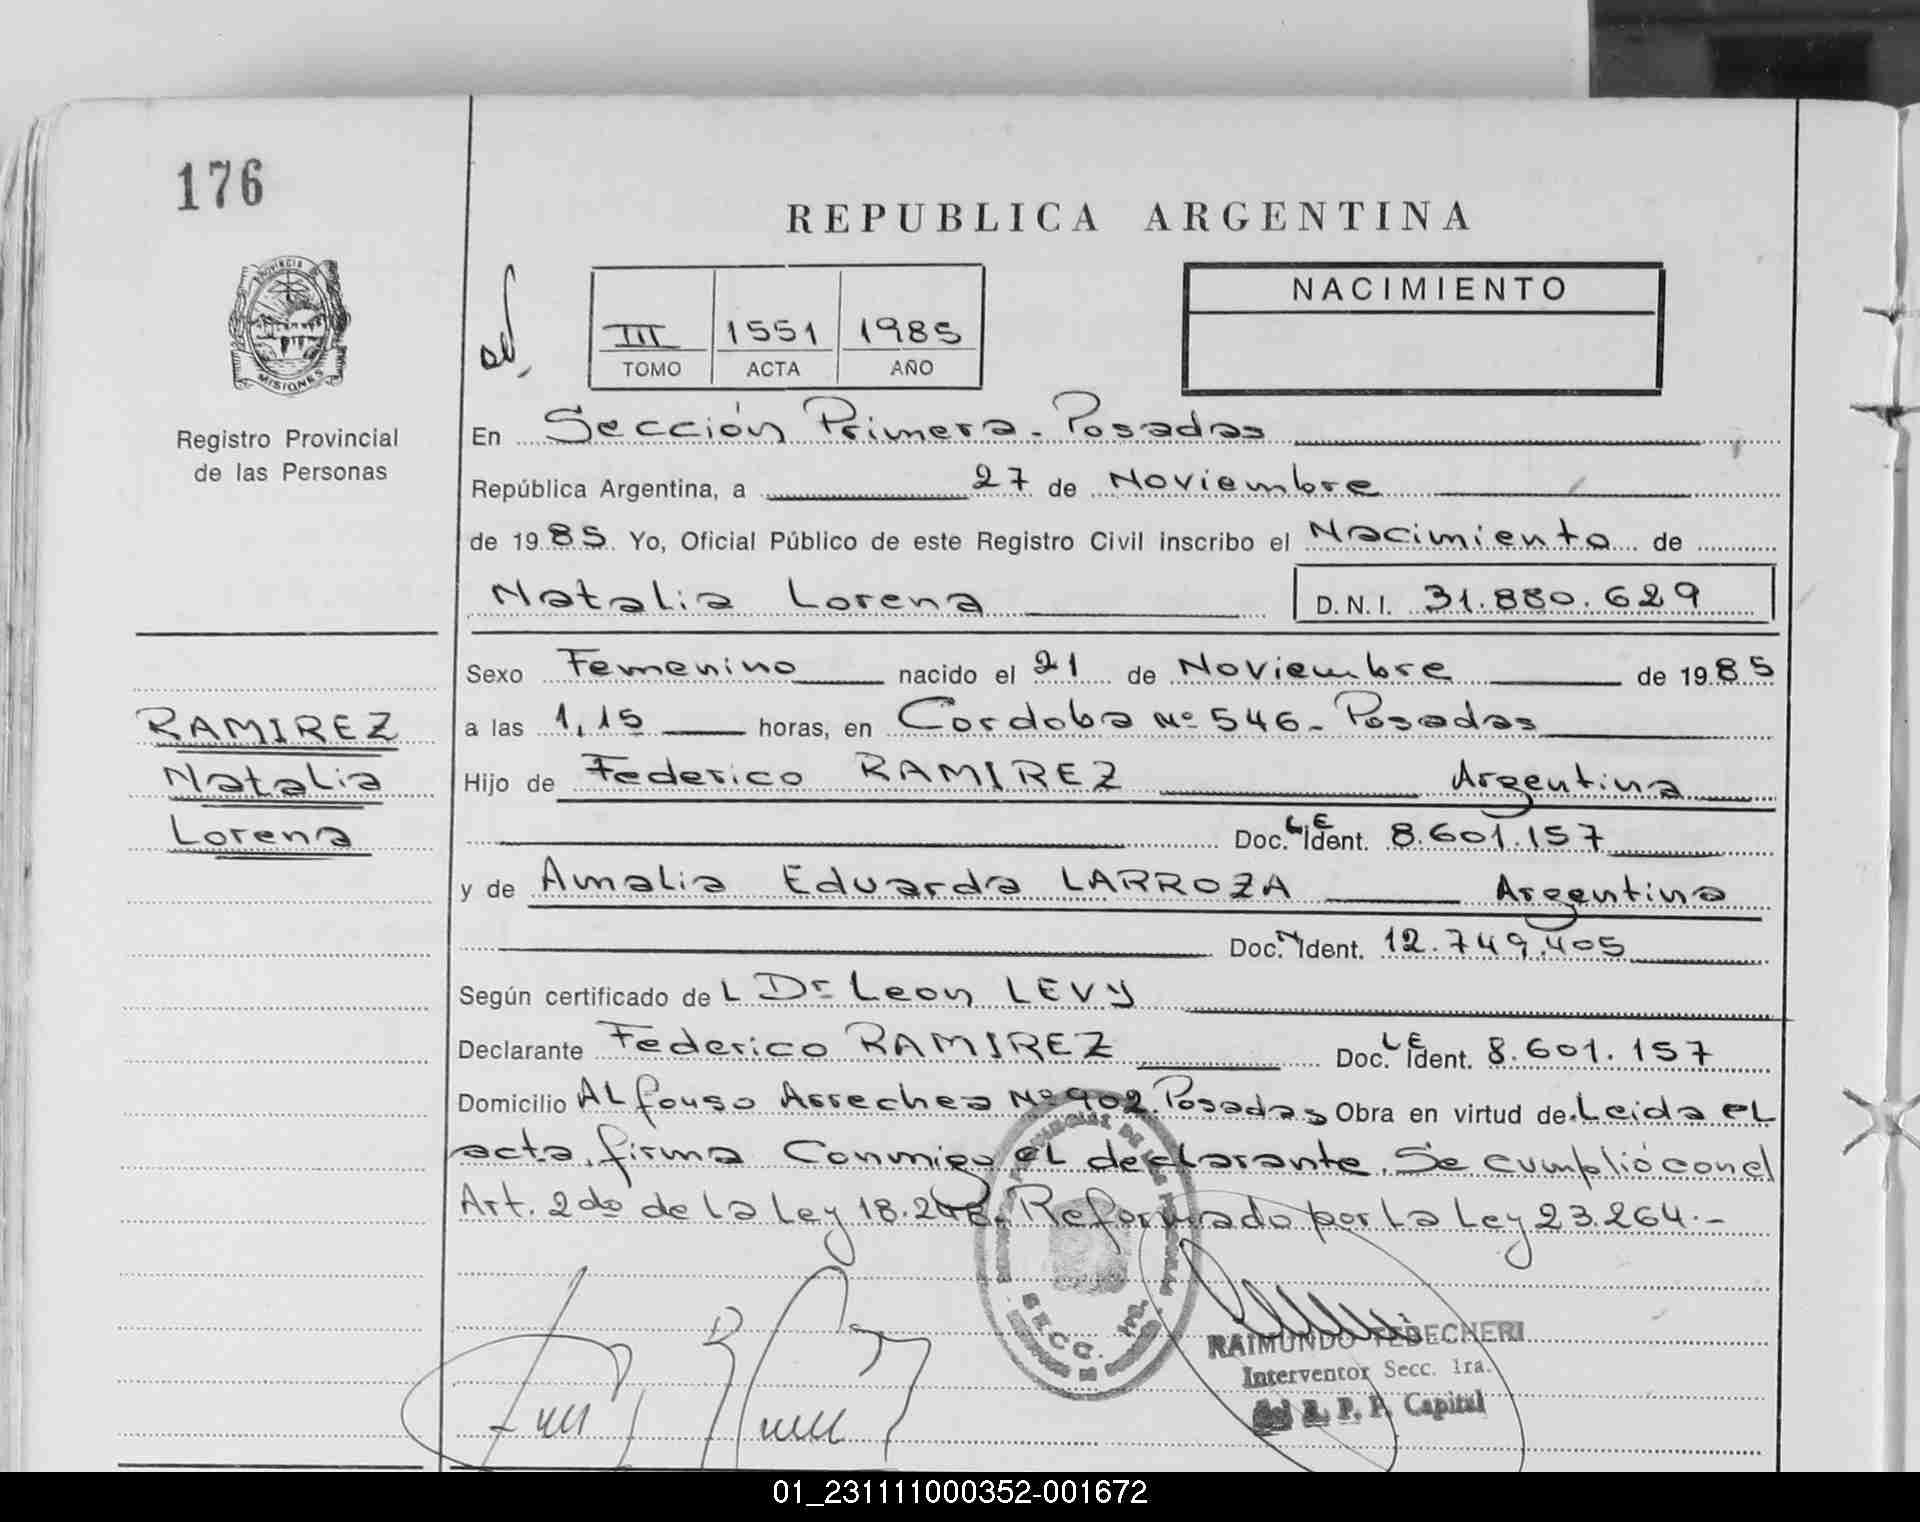 176
REPUBLICA ARGENTINA
PROVINCIA
MISIONES
Registro Provincial
de las Personas
III 1551 1985
TOMO ACTA AÑO
NACIMIENTO
En Sección Primera - Posadas
República Argentina, a 27 de Noviembre
de 1985 Yo, Oficial Público de este Registro Civil inscribo el Nacimiento de
Natalia Lorena D.N.I. 31.880.629
Sexo Femenino nacido el 21 de Noviembre de 1985
a las 1,15 horas, en Cordoba Nº 546 - Posadas
Hijo de Federico RAMIREZ Argentina
Doc. LE Ident. 8.601.157
y de Amalia Eduarda LARROZA Argentina
Doc. N Ident. 12.749.405
Según certificado de L Dr Leon LEVY
Declarante Federico RAMIREZ Doc. LE Ident. 8.601.157
Domicilio ALfonso Arrechea Nº 902. Posadas Obra en virtud de Leida eL
acta, firma Conmigo eL declarante. Se cumplió con el
Art. 2do de La Ley 18.248. Reformado por La Ley 23.264.-
RAMIREZ
Natalia
Lorena
SECC. 1ra.
RAIMUNDO TEDECHERI
Interventor Secc. 1ra.
del R. P. P. Capital
01_231111000352-001672